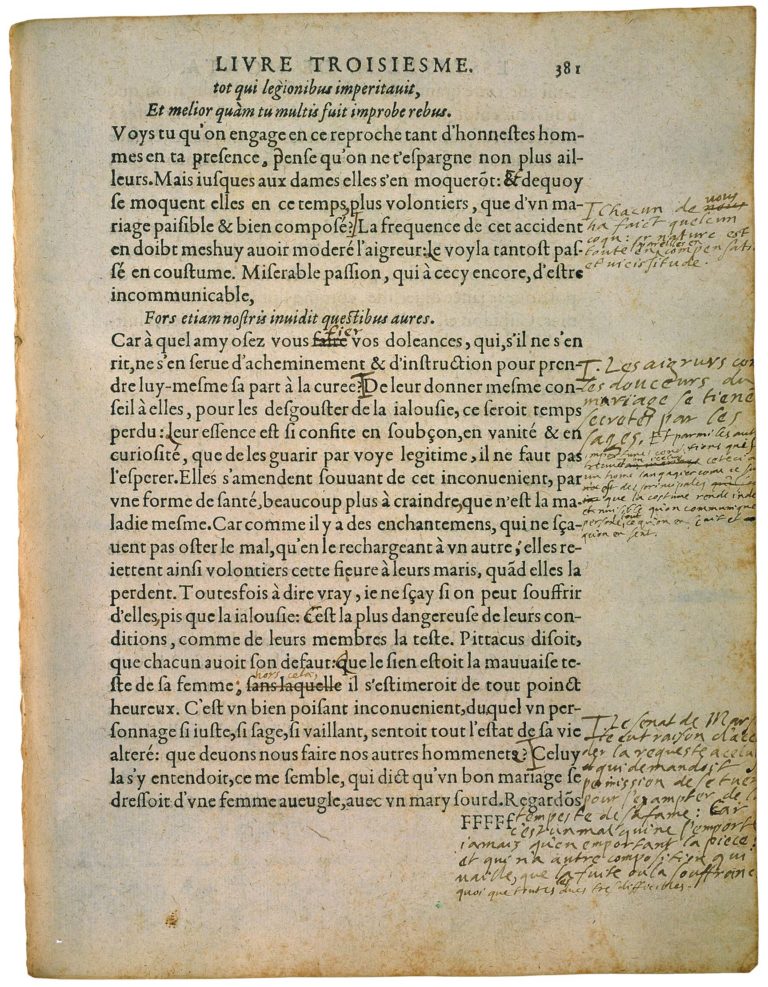 LIVRE TROISIESME. 381
tot qui legionibus imperitauit,
Et melior quàm tu multis fuit improbe rebus.
Voys tu qu'on engage en ce reproche tant d'honnestes hom-
mes en ta presence, pense qu'on ne t'espargne non plus ail-
leurs. Mais iusques aux dames elles s'en moquerõt: & dequoy
se moquent elles en ce temps plus volontiers, que d'vn ma-
riage paisible & bien composé? La frequence de cet accident
en doibt meshuy auoir moderé l'aigreur: le voyla tantost pas-
sé en coustume. Miserable passion, qui à cecy encore, d'estre
incommunicable,
Fors etiam nostris inuidit questibus aures.
Car à quel amy osez vous faire fier vos doleances, qui, s'il ne s'en
rit, ne s'en serue d'acheminement & d'instruction pour pren-
dre luy-mesme sa part à la curee? De leur donner mesme con-
seil à elles, pour les desgouster de la ialousie, ce seroit temps
perdu: leur essence est si confite en soubçon, en vanité & en
curiosité, que de les guarir par voye legitime, il ne faut pas
l'esperer. Elles s'amendent souuant de cet inconuenient, par
vne forme de santé, beaucoup plus à craindre, que n'est la ma-
ladie mesme. Car comme il y a des enchantemens, qui ne sça-
uent pas oster le mal, qu'en le rechargeant à vn autre; elles re-
iettent ainsi volontiers cette fieure à leurs maris, quãd elles la
perdent. Toutesfois à dire vray, ie ne sçay si on peut souffrir
d'elles, pis que la ialousie: C'est la plus dangereuse de leurs con-
ditions, comme de leurs membres la teste. Pittacus disoit,
que chacun auoit son defaut: Que le sien estoit la mauuaise te-
hors cela,
ste de sa femme; sans laquelle il s'estimeroit de tout poinct
heureux. C'est vn bien poisant inconuenient, duquel vn per-
sonnage si iuste, si sage, si vaillant, sentoit tout l'estat de sa vie
alteré: que deuons nous faire nos autres hommenets? Celuy
la s'y entendoit, ce me semble, qui dict qu'vn bon mariage se
dressoit d'vne femme aueugle, auec vn mary sourd. Regardõs
FFFFf
Chacun de nous vous
ha faict quelcun
coqu: or nature est
toute en pareilles en compensati
et vicissitude.
Les aigrurs co
les douceurs du
mariage se tiene
secretes par les
sages. Et parmi les aut
importunes conditions qui
treuuent
ceteci a
un home langagier come ie su
des principales
que la costume rende inde
et nuisible qu'on communique
persone tout ce qu'on en sçait et
qu'on en sent.
Le senat de Mars
eut raison d'ac
der la requeste a celu
qui demandoit
permission de se tuer
pour s'exampter de l
tempeste de sa fame: Car
c'est un mal qui ne s'emport
jamais qu'en emportant la piece:
et qui n'a autre composition qui
vaille, que la fuite ou la souffranc
quoi que toutes les deus tresdifficiles.